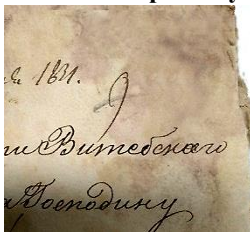 1831.
9
ти Витебскаго
Господину